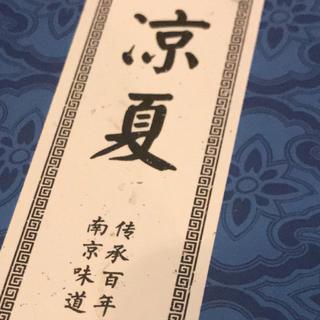 凉夏
传承百年
南京味道